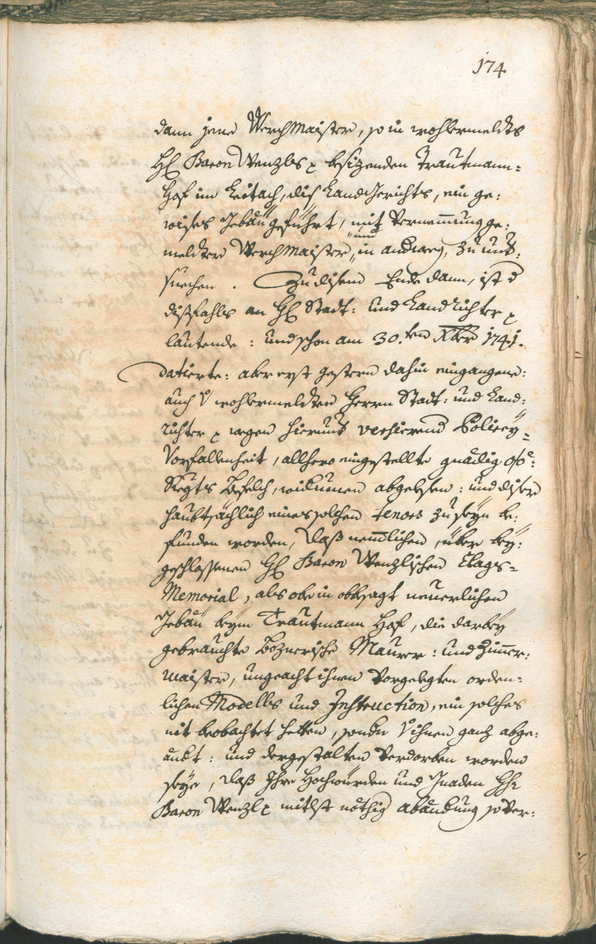 174
dann jene Werchmaister, so in wohlermelts
H: Baron Wenzls besizenden Trautmann-
hof im Leitach, dis Landgerichts, ein ge-
wises Gebäu geführt, mit Vernemmung ge-
melter Werchmaister, und in andweg, zu unt-
suechen. Zu disem Ende dann, ist
dißfahls an H: Stadt: und Landrichter
lautende: und schon am 30.ten Xber 1741.
datierte: aber erst gestern dahin eingangene:
auch wohlermelten Herrn Stadt: und Land-
richter wegen hierunt versierend Policey-
Vorfallenheit, allhero eingestellte gnädig
Befelch, abgelesen: und diser
haubtsächlich eines solchen tenors zu seyn be-
funden worden, daß nemmlichen über bey-
geschlossenen H: Baron Wenzlischen Clags-
Memorial, als ob in obbesagt neuerlichen
Gebäu beym Trautmann Hof, die darbey
gebrauchte Boznerische Maurer: und Zimmer-
maister, ungeacht ihnen vorgelegten orden-
lichen Modells und Instruction, ein solches
nit beobachtet hetten, sonder ihnen ganz abge-
änd: und dergestalten verdorben worden
seye, daß Ihre Hochwürden und Gnaden H:
Baron Wenzl mitlst nöthig abändung so ver-